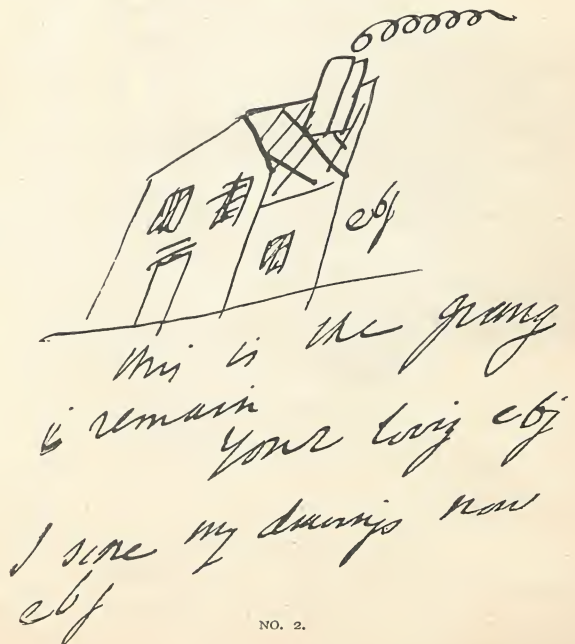 ebj
this is the grang
i remain
your loving ebj
I sine my drawings now
ebj
NO. 2.